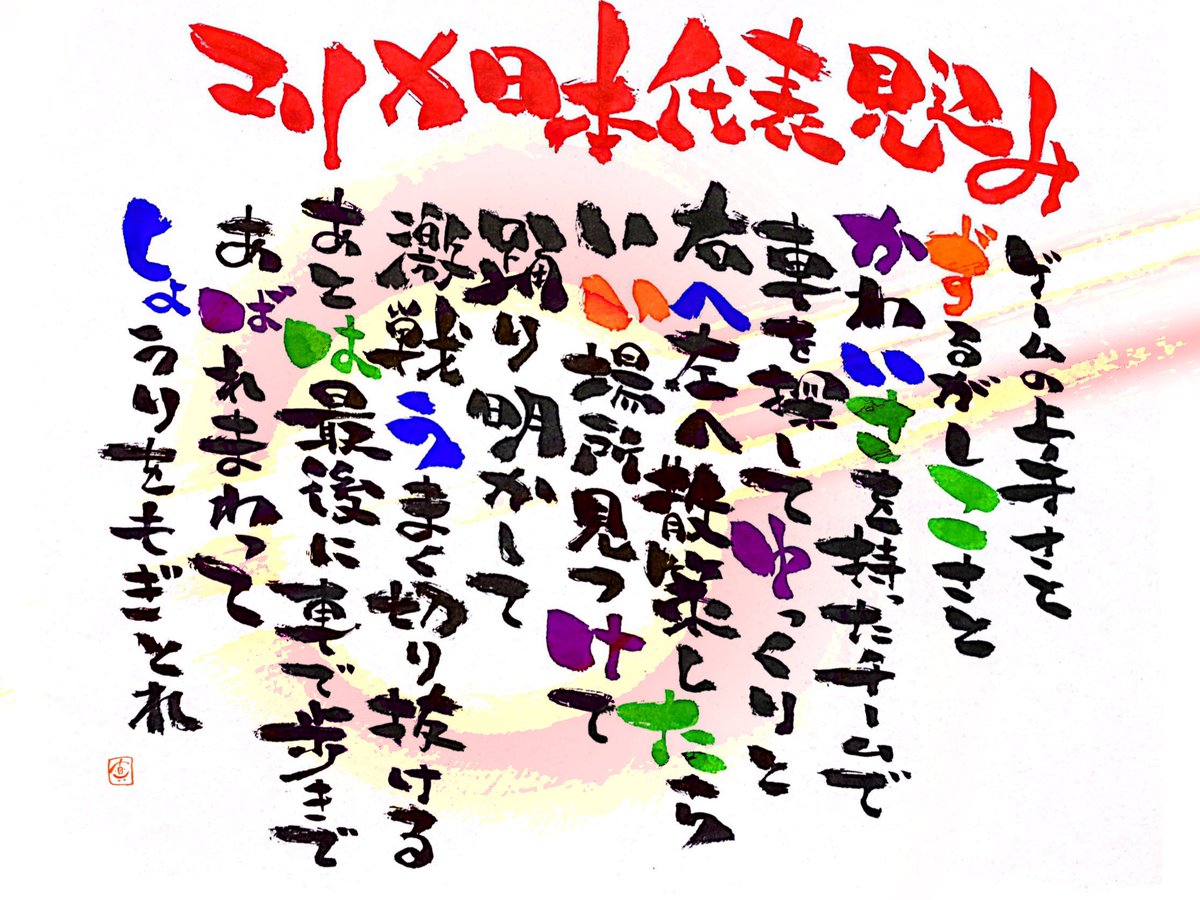 マリメ日本代表見込み
ゲームの上手さと
ずるがしこさと
かわいさを持ったチームで
車を操してゆっくりと
右へ左へ散策したら
いい場所見つけて
踊り明かして
激戦うまく切り抜ける
あとは最後に車で歩きで
あばれまわって
しょうりをもぎとれ